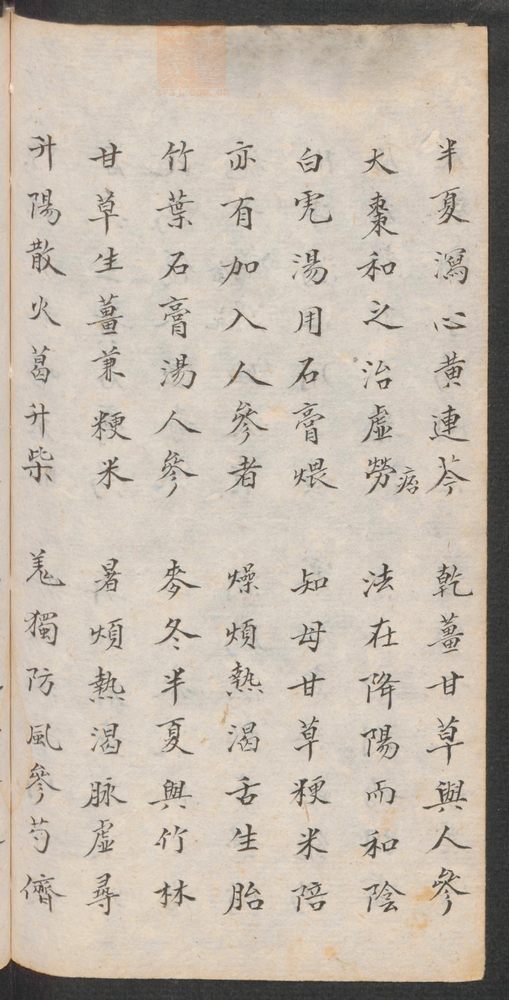 半夏瀉心黄連芩　乾薑甘草與人參
大棗和之治虛勞痞　法在降陽而和陰
白虎湯用石膏煨　知母甘草粳米陪
亦有加入人參者　燥煩熱渴舌生胎
竹葉石膏湯人參　麥冬半夏與竹林
甘草生薑兼粳米　暑煩熱渴脉虛尋
升陽散火葛升柴　羌獨防風參芍儕